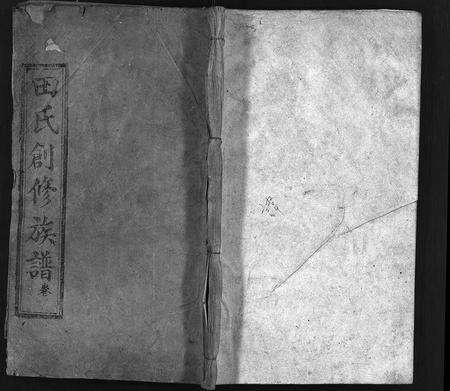 田氏創修族譜卷